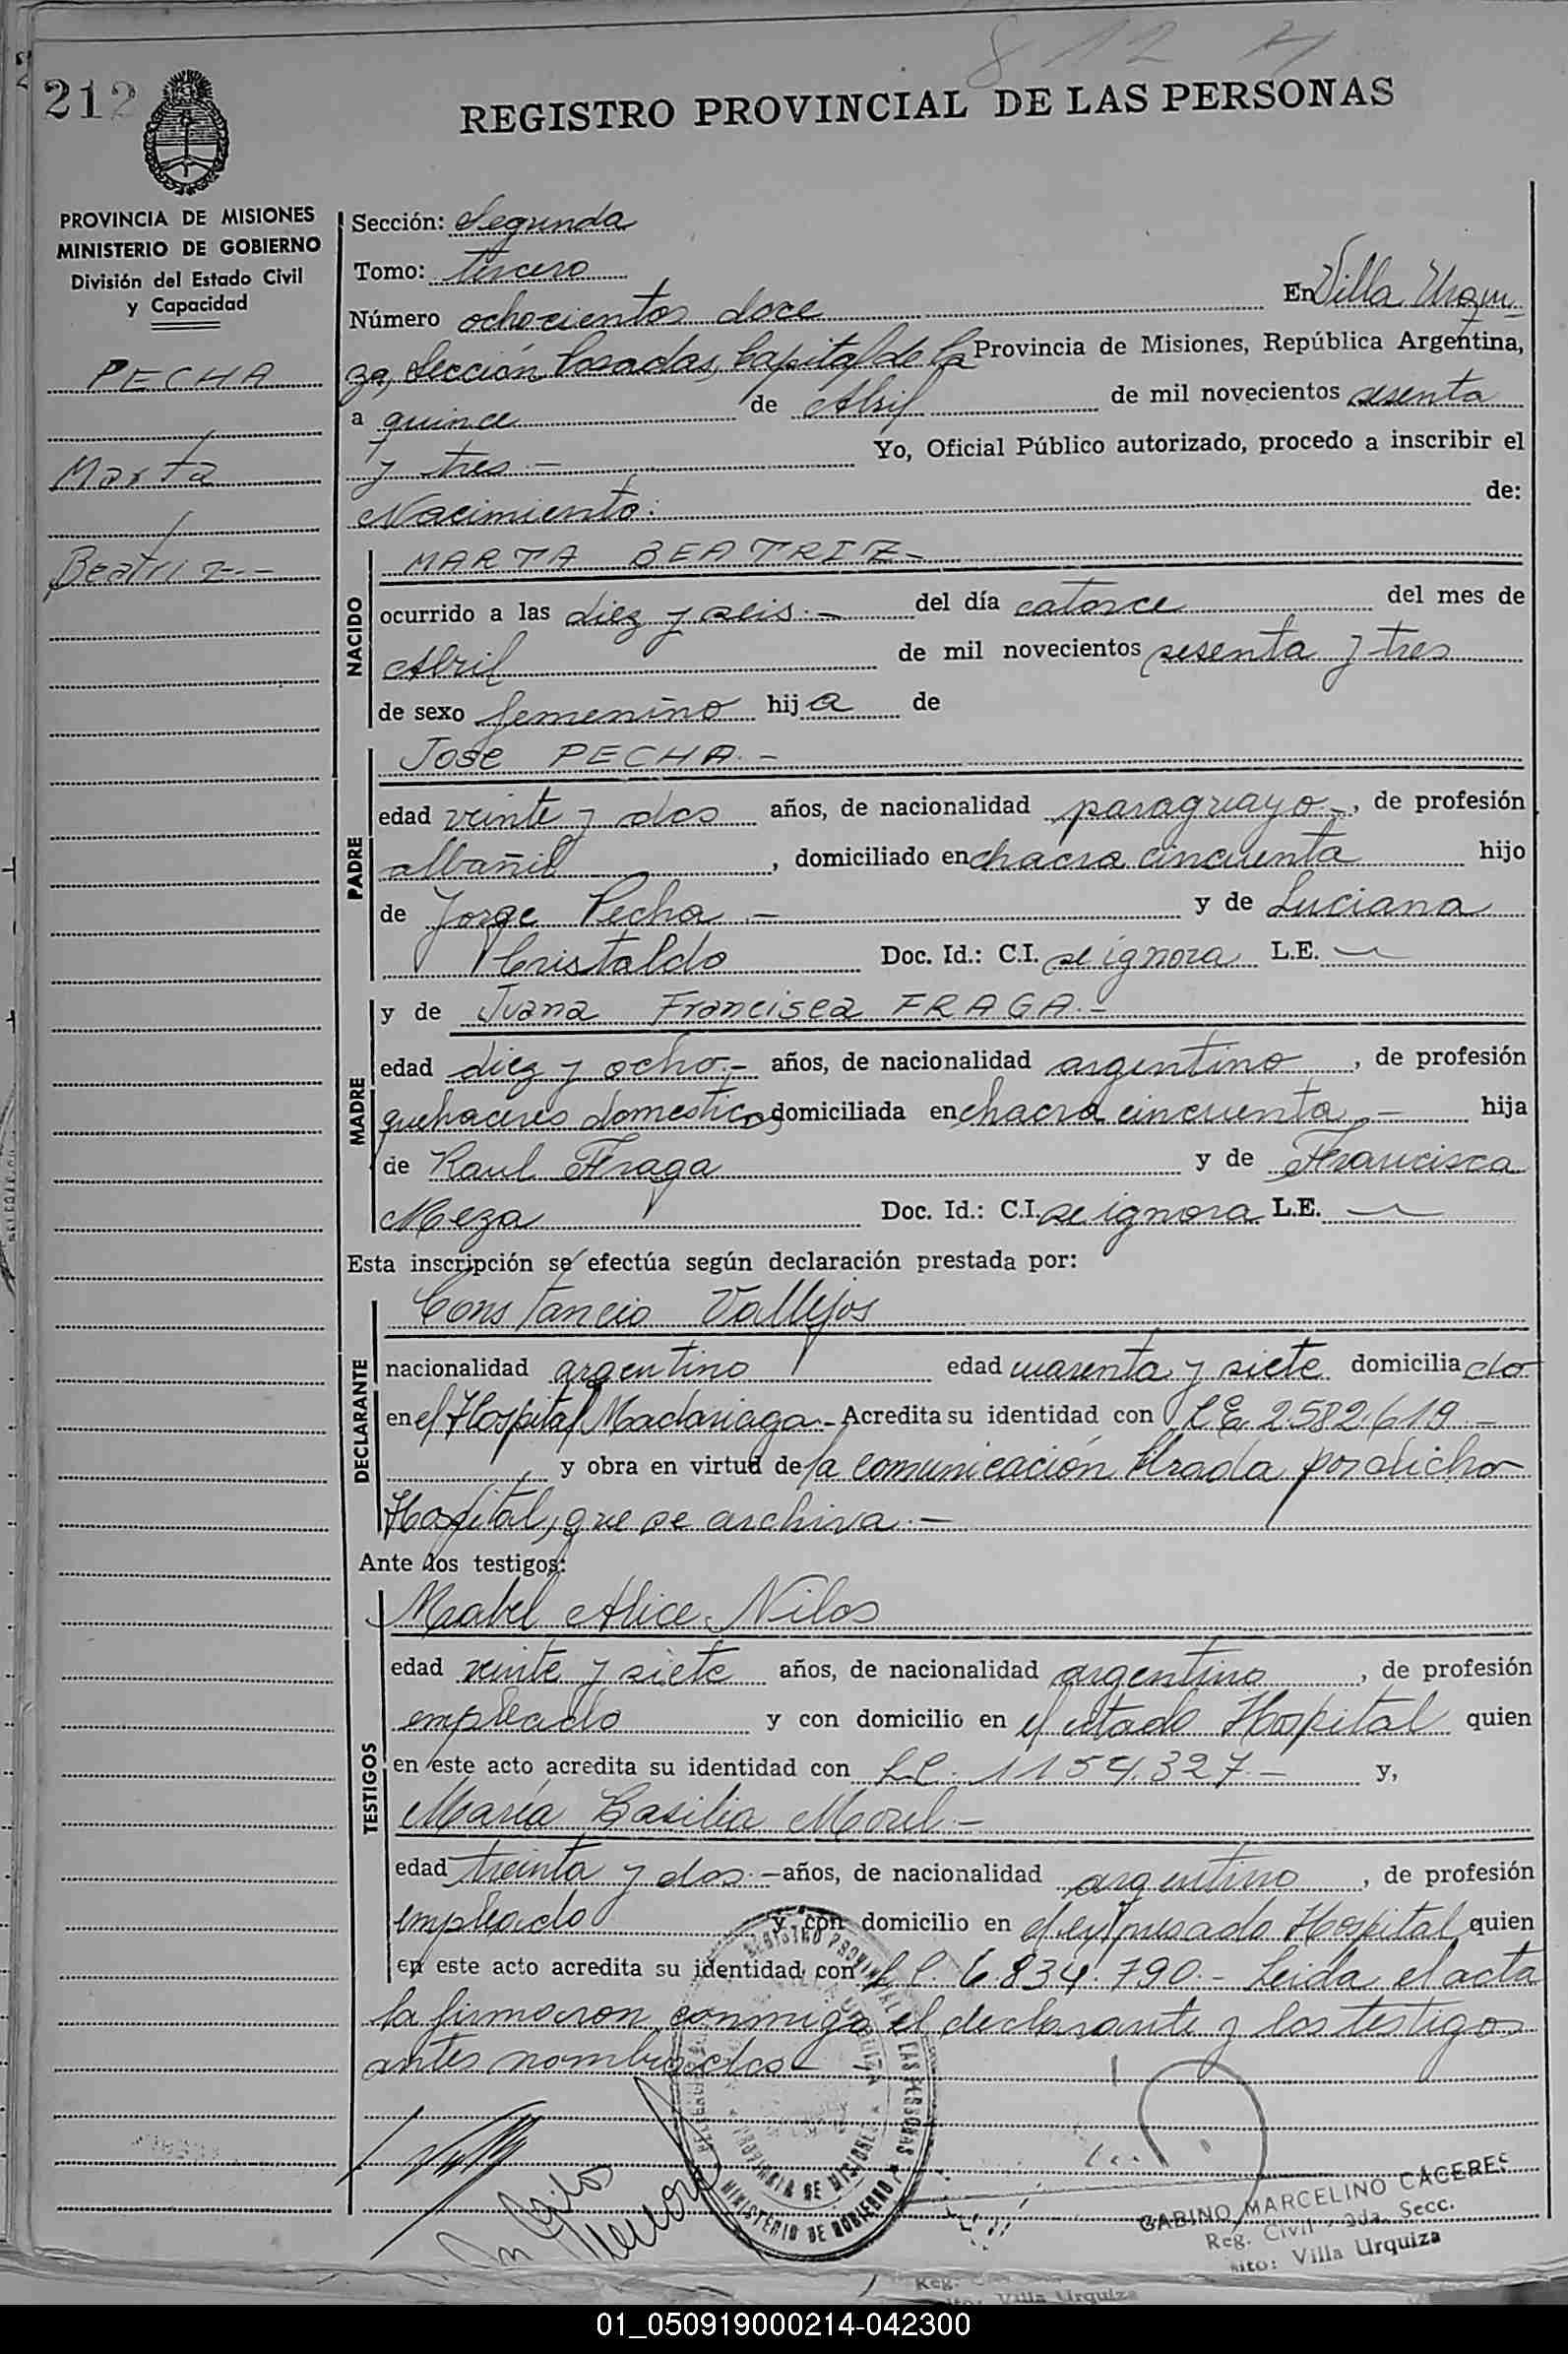 812
212
REGISTRO PROVINCIAL DE LAS PERSONAS
PROVINCIA DE MISIONES
MINISTERIO DE GOBIERNO
División del Estado Civil
y Capacidad
PECHA
Marta
Beatriz.-
Sección: Segunda
Tomo: tercero
Número ochocientos doce En Villa Urqui-
za, Sección Posadas, Capital de la Provincia de Misiones, República Argentina,
a quince de Abril de mil novecientos sesenta
y tres.- Yo, Oficial Público autorizado, procedo a inscribir el
Nacimiento: de:
NACIDO
MARTA BEATRIZ-
ocurrido a las diez y seis.- del día catorce del mes de
Abril de mil novecientos sesenta y tres
de sexo femenino hija de
PADRE
Jose PECHA.-
edad veinte y dos años, de nacionalidad paraguayo-, de profesión
albañil, domiciliado en chacra cincuenta hijo
de Jorge Pecha.- y de Luciana
Cristaldo Doc. Id.: C.I. se ignora L.E. —
MADRE
y de Juana Francisca FRAGA.-
edad diez y ocho.- años, de nacionalidad argentino, de profesión
quehaceres domesticos, domiciliada en chacra cincuenta.- hija
de Raul Fraga y de Francisca
Meza Doc. Id.: C.I. se ignora L.E. —
Esta inscripción se efectúa según declaración prestada por:
DECLARANTE
Constancio Vallejos
nacionalidad argentino edad cuarenta y siete domiciliado
en el Hospital Madariaga.- Acredita su identidad con L.E. 2.582.619.-
y obra en virtud de la comunicación librada por dicho
Hospital, que se archiva.-
Ante los testigos:
TESTIGOS
Mabel Alice Nilos
edad veinte y siete años, de nacionalidad argentino, de profesión
empleado y con domicilio en el citado Hospital quien
en este acto acredita su identidad con L.C. 1154.327.- y,
María Basilia Morel.-
edad treinta y dos.- años, de nacionalidad argentino, de profesión
empleado y con domicilio en el expresado Hospital quien
en este acto acredita su identidad con L.C. 6.834.790.- Leida el acta
la firmaron conmigo el declarante y los testigos
antes nombrados-
REGISTRO PROVINCIAL DE LAS PERSONAS
PROVINCIA DE MISIONES
MINISTERIO DE GOBIERNO
GABINO MARCELINO CACERES
Reg. Civil - 2da. Secc.
Villa Urquiza
Villa Urquiza
01_050919000214-042300